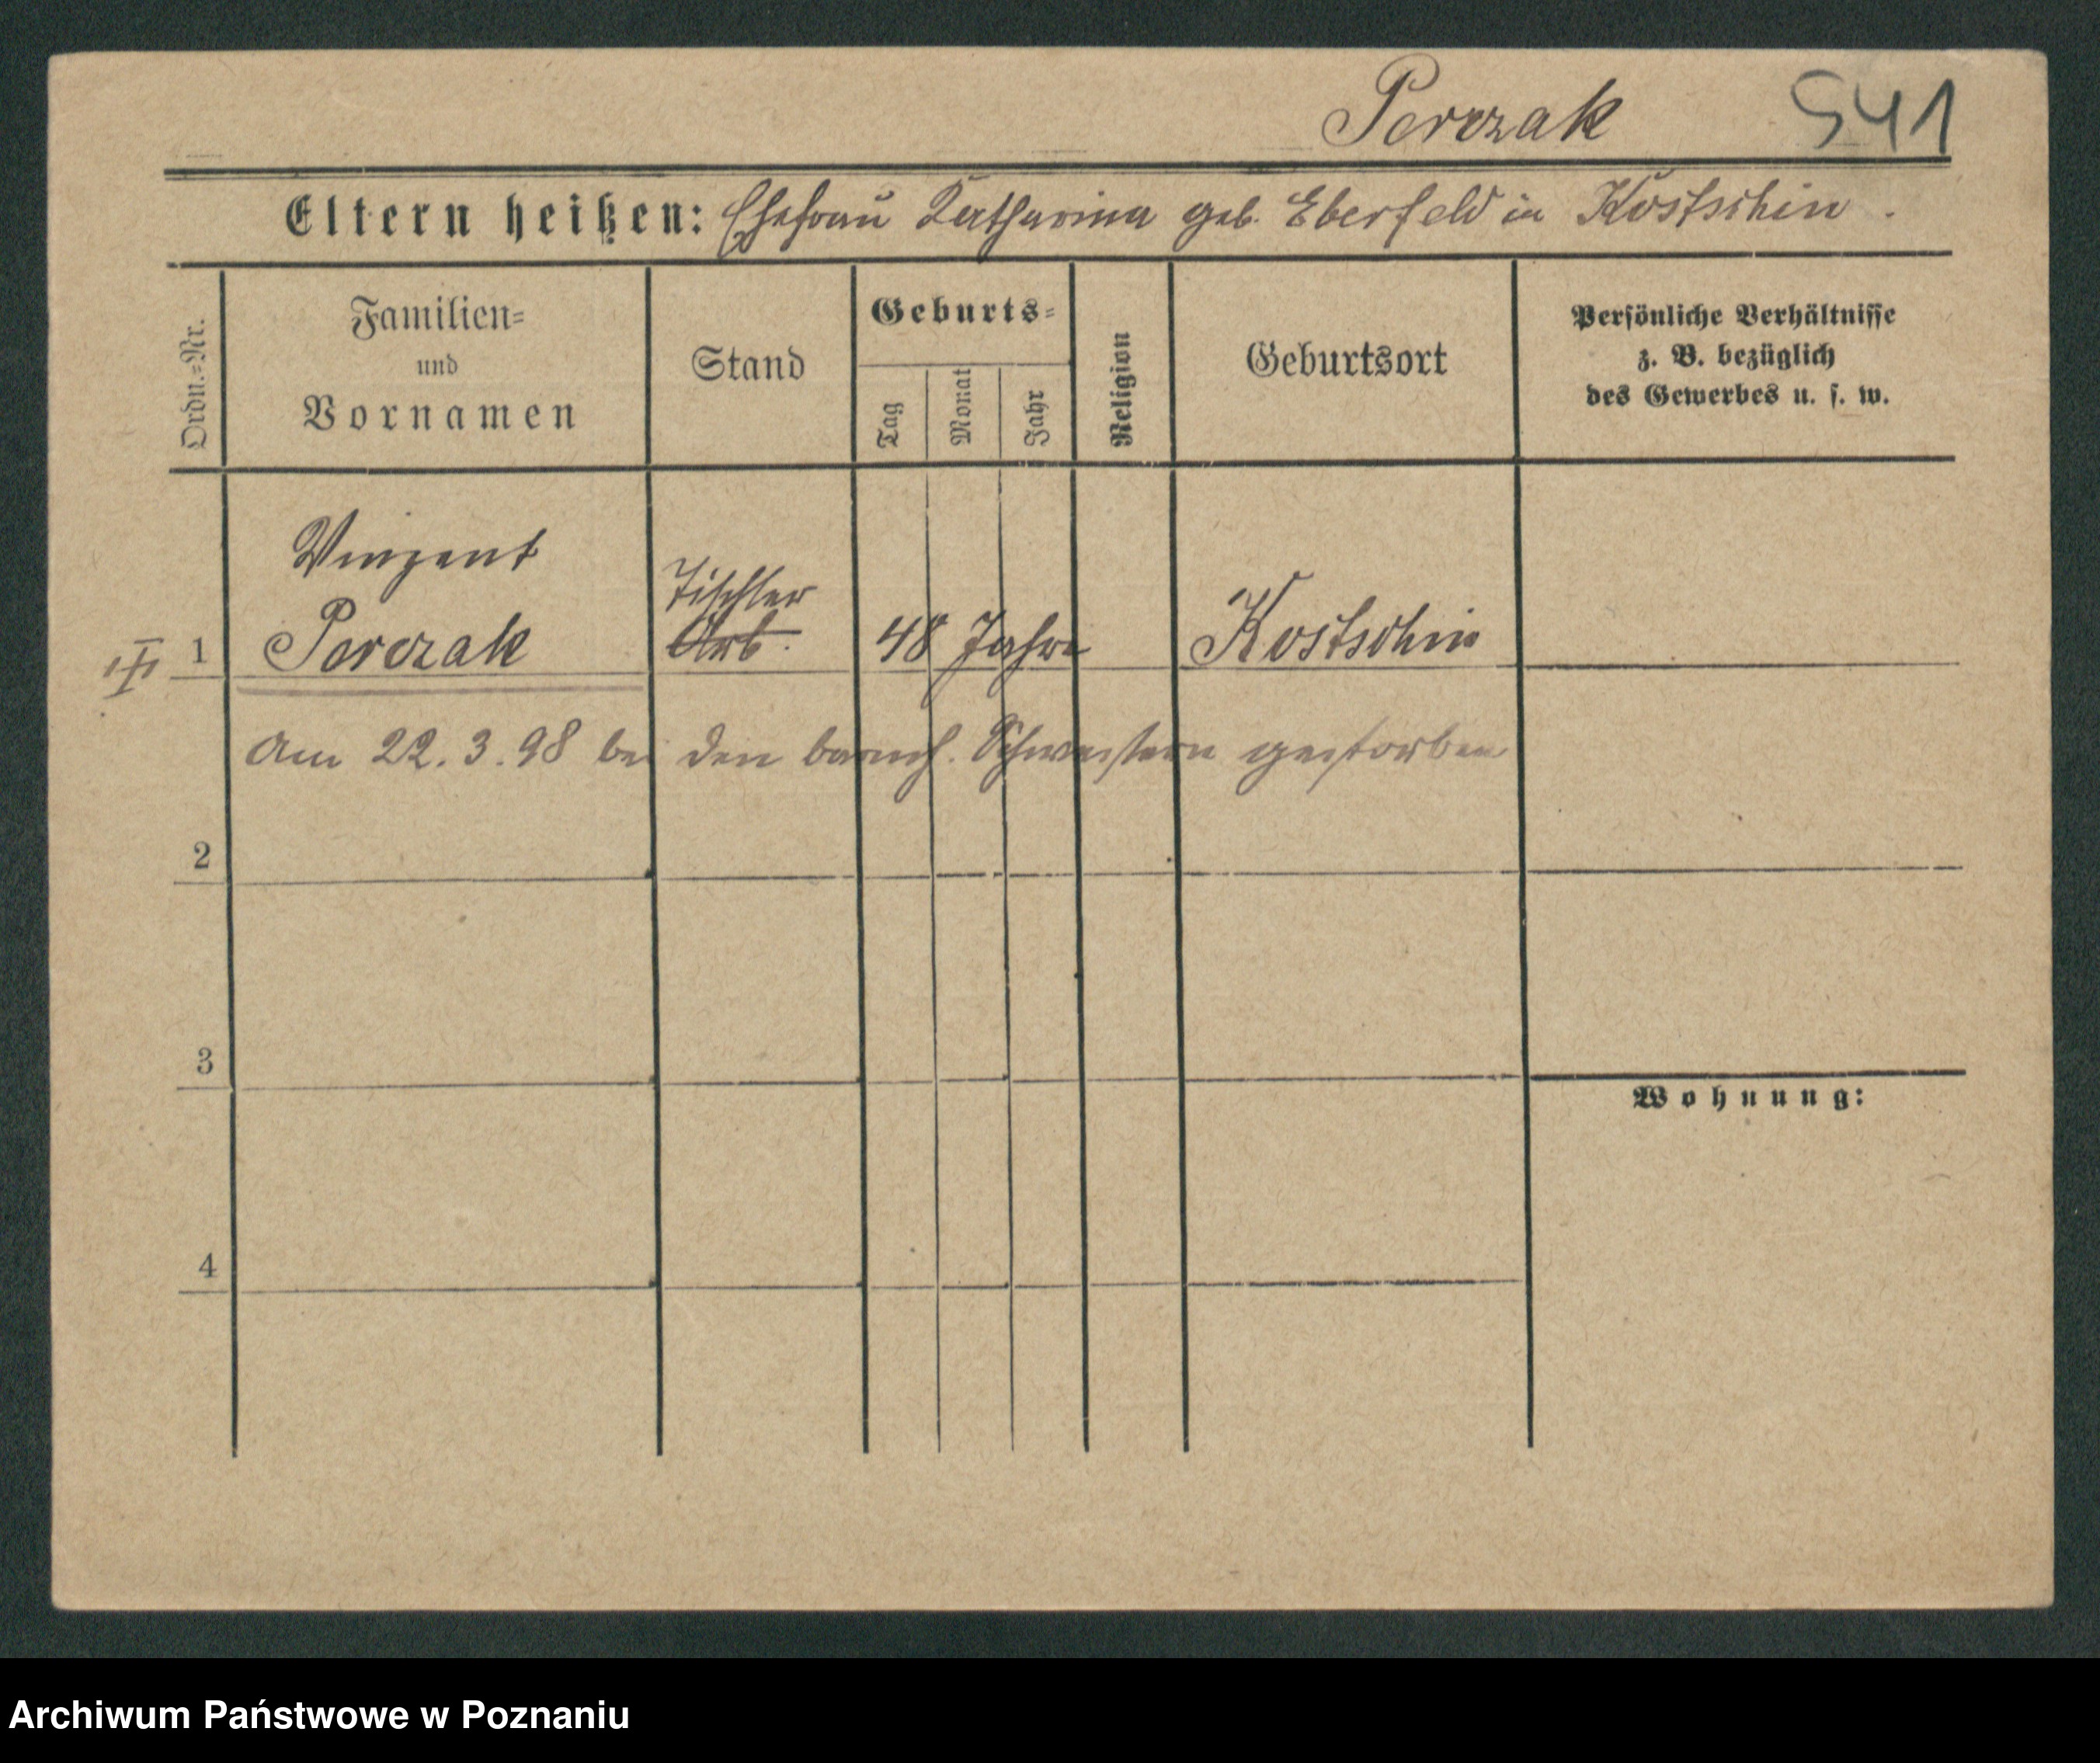 Perczak 541
Eltern heißen: Ehefrau Katharina geb. Eberfeld in Kostschin.
Ordn.=Nr.
Familien=
und
Vornamen
Stand
Geburts=
Tag
Monat
Jahr
Religion
Geburtsort
Persönliche Verhältnisse
z. B. bezüglich
des Gewerbes u. s. w.
Vinzent
Tischler
1 Perczak Arb. 48 Jahre Kostschin
Am 22.3.98 bei den barmh. Schwestern gestorben
2
3
Wohnung:
4
Archiwum Państwowe w Poznaniu